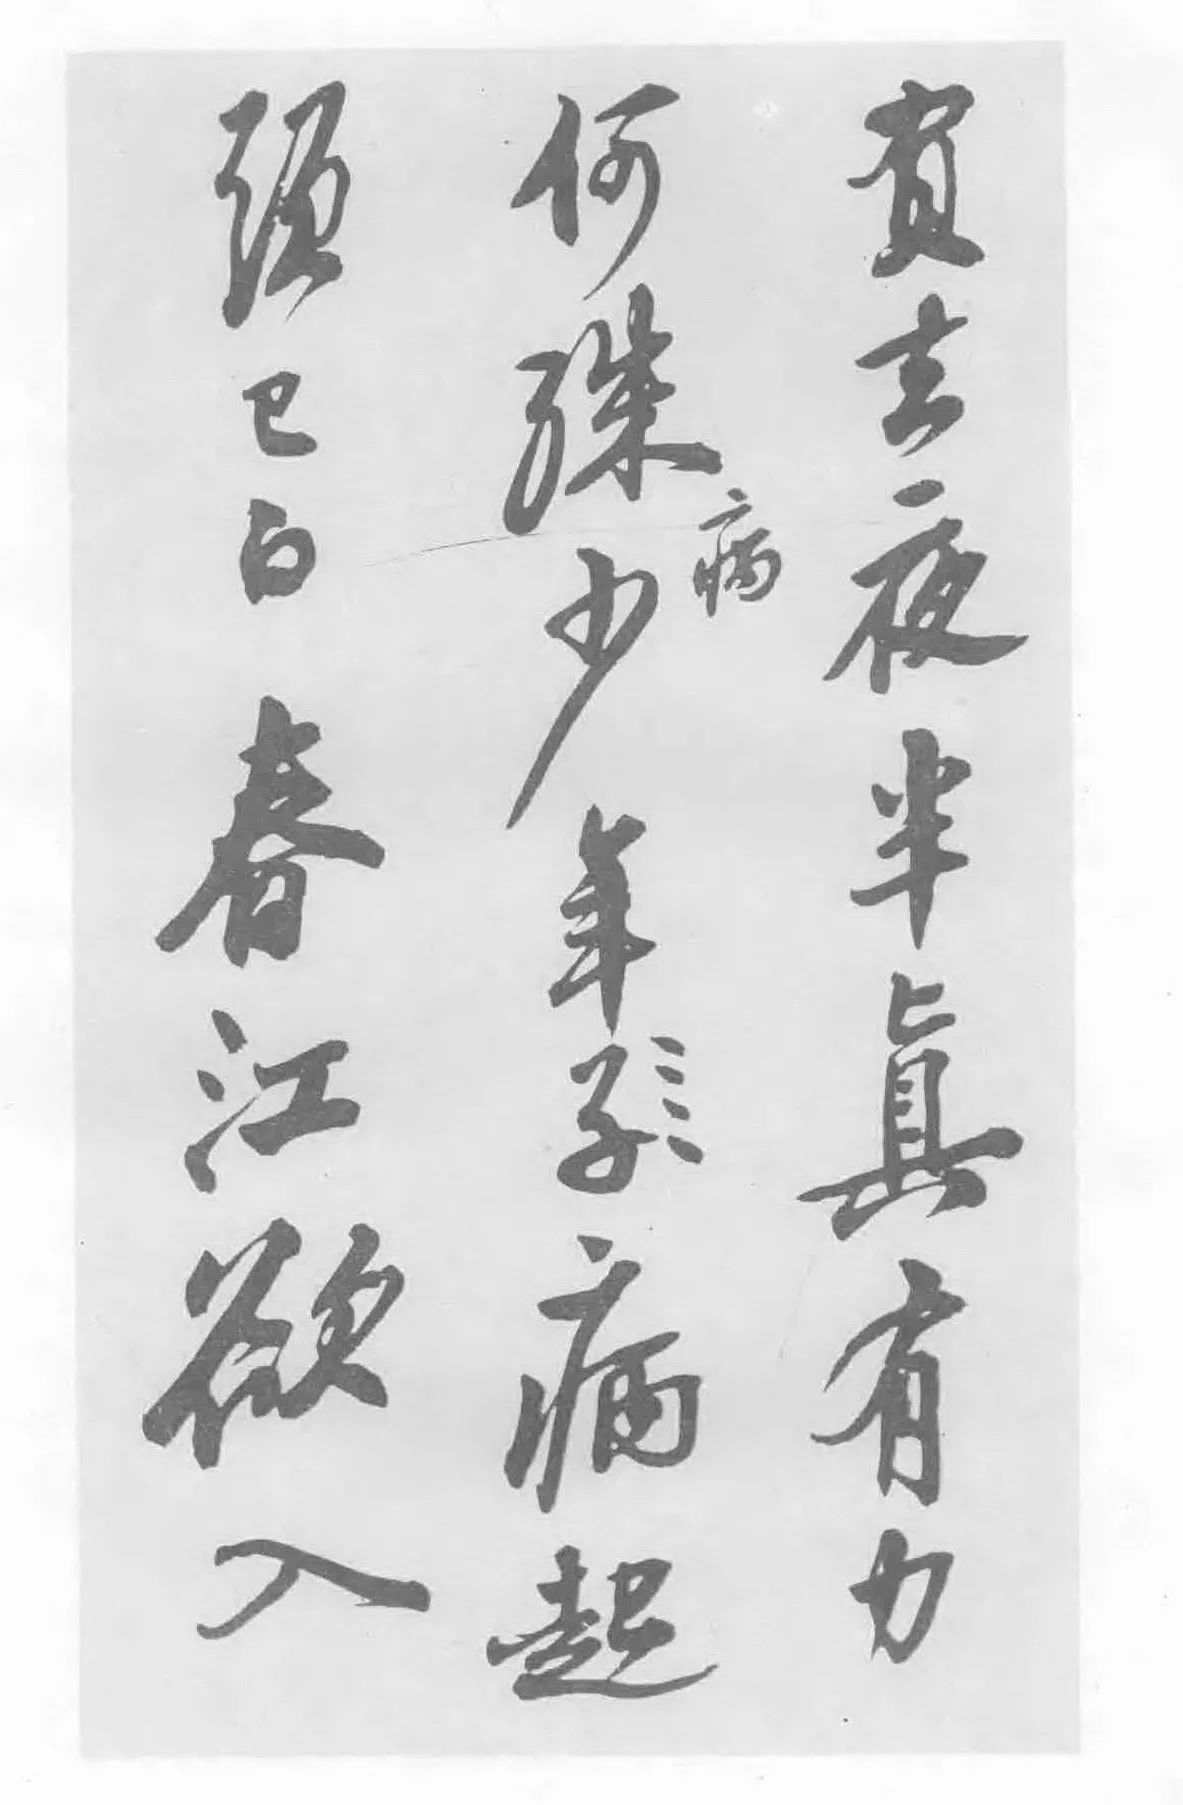 負去夜半真有力
何殊病少年子病起
頭已白春江欲入